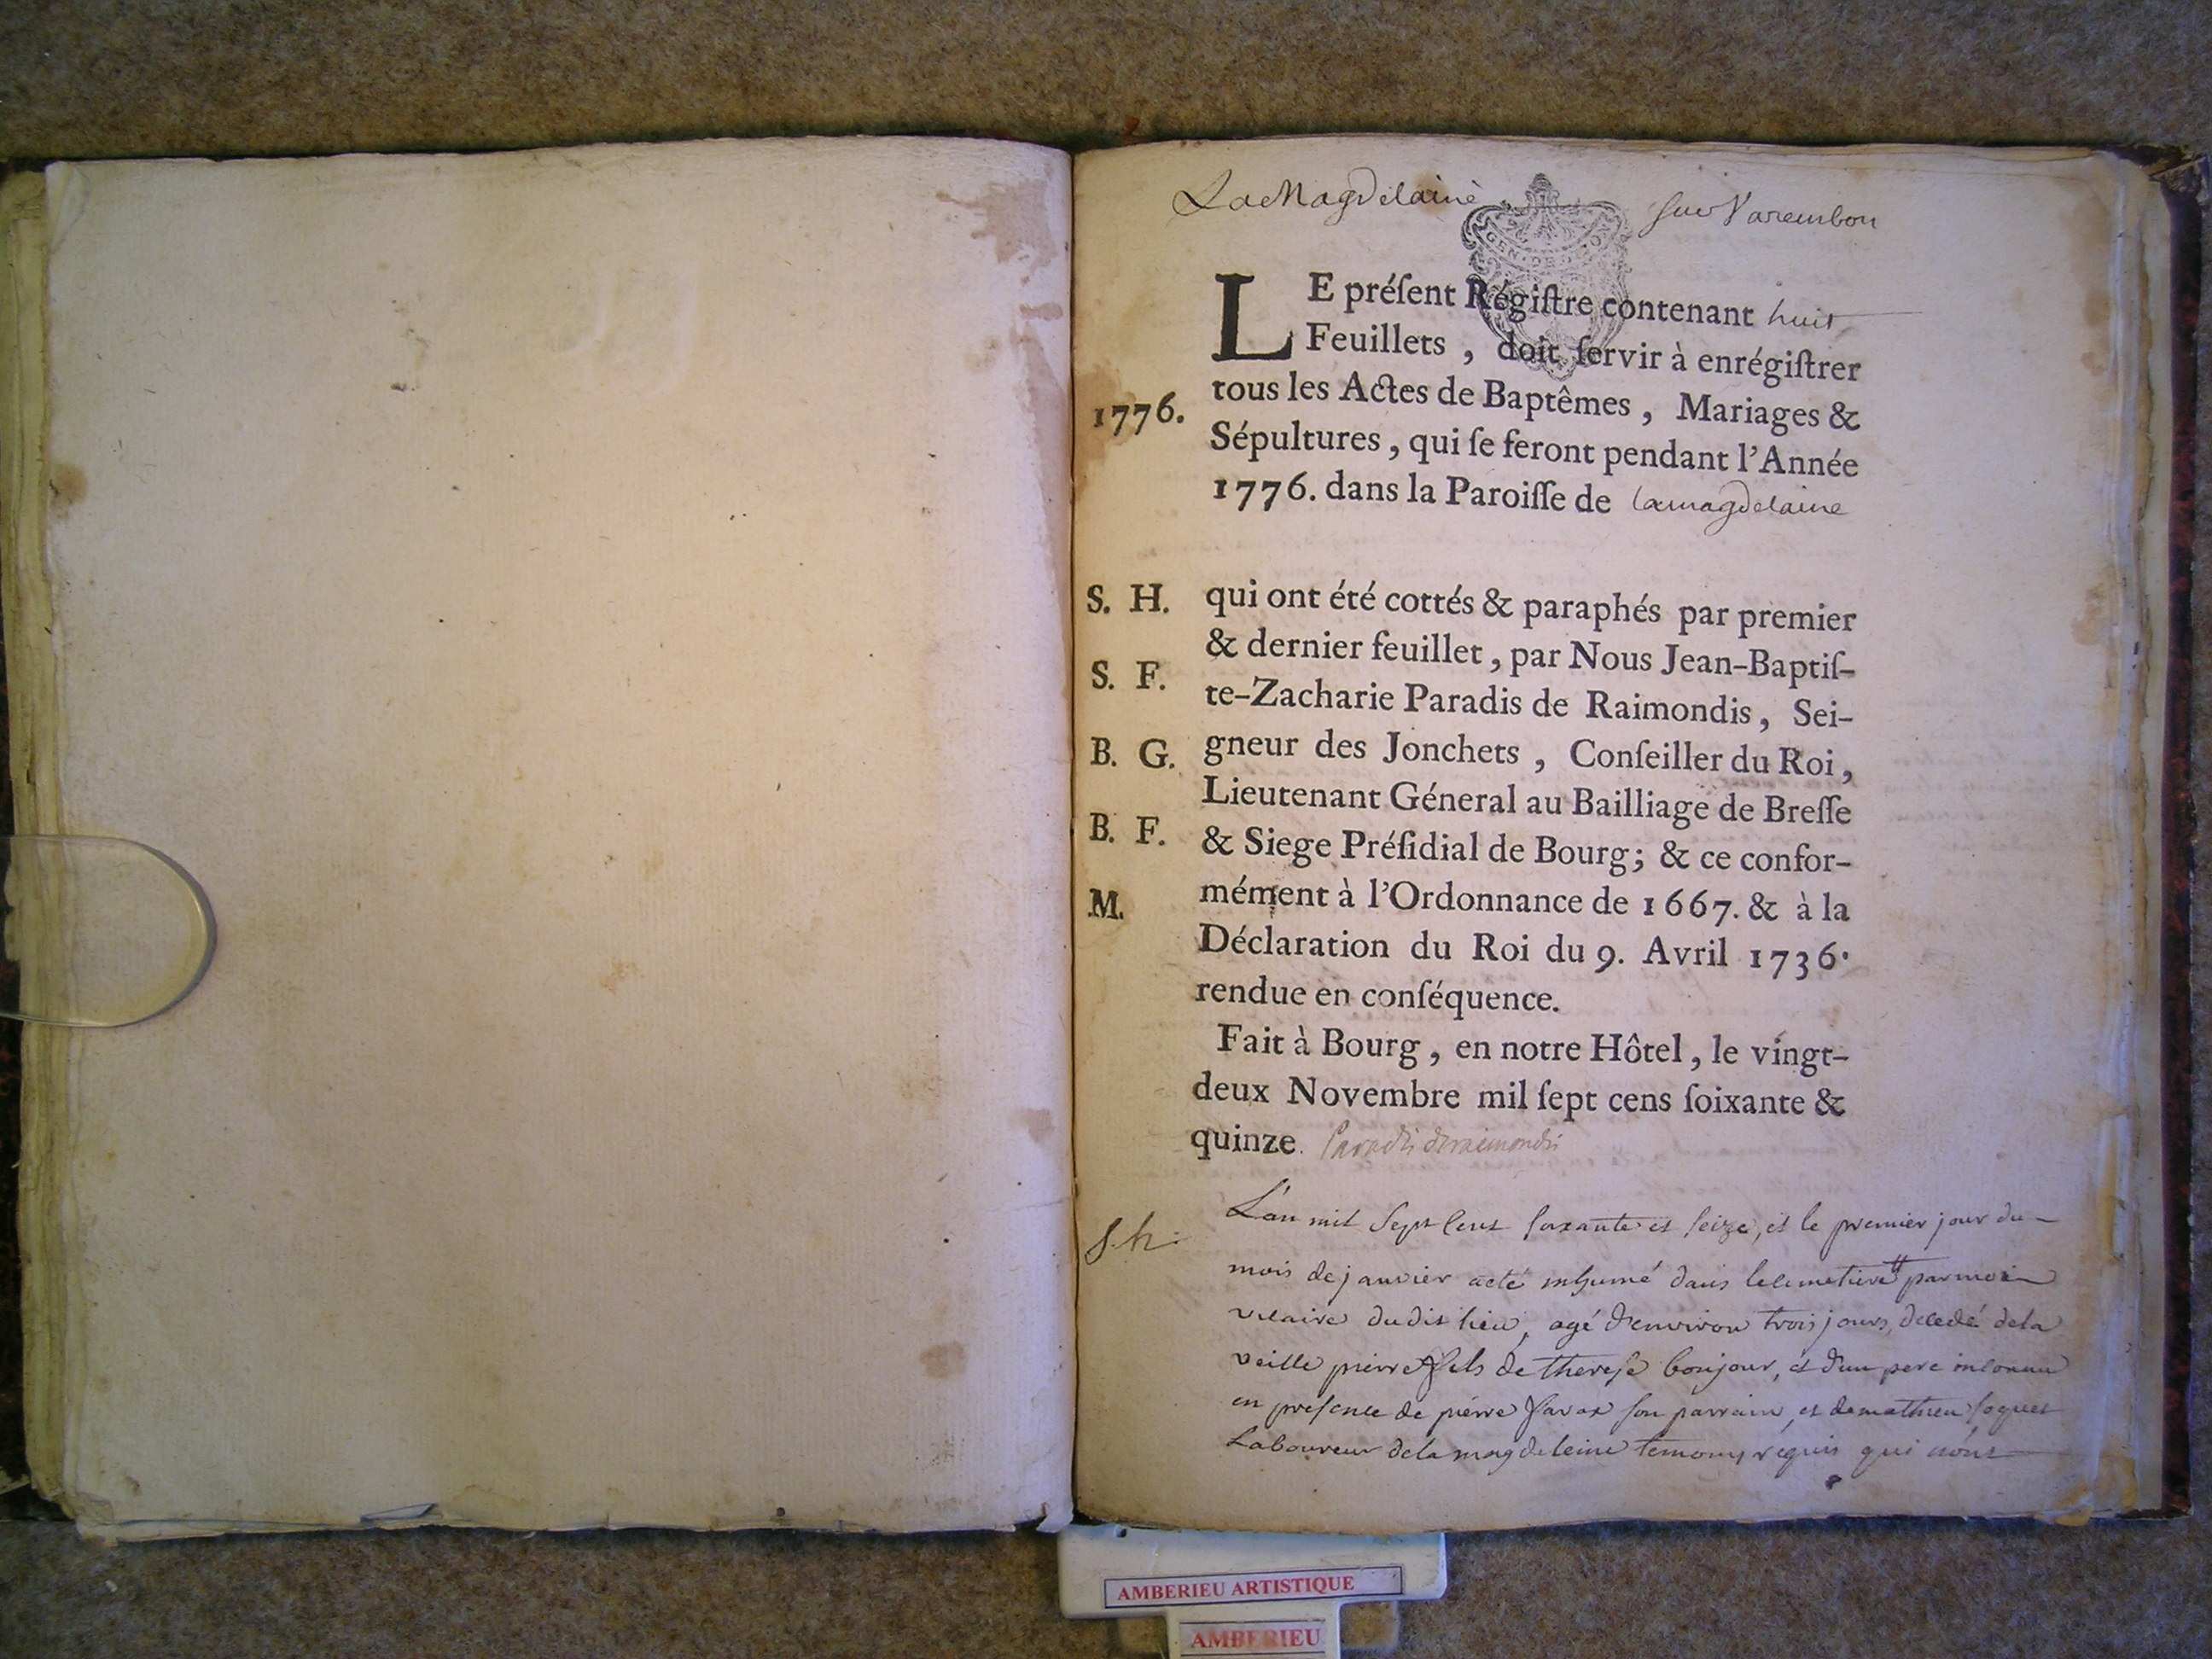 La Magdelaine sur Varembon
LE préſent Régiſtre contenant huit
Feuillets , doit ſervir à enrégiſtrer
tous les Actes de Baptêmes , Mariages &
1776.
Sépultures , qui ſe feront pendant l'Année
1776. dans la Paroiſſe de lamagdelaine
S. H. qui ont été cottés & paraphés par premier
& dernier feuillet , par Nous Jean-Baptiſ-
S. F. te-Zacharie Paradis de Raimondis , Sei-
B. G. gneur des Jonchets , Conſeiller du Roi ,
Lieutenant Géneral au Bailliage de Breſſe
B. F. & Siege Préſidial de Bourg; & ce confor-
M. mément à l'Ordonnance de 1667. & à la
Déclaration du Roi du 9. Avril 1736.
rendue en conſéquence.
Fait à Bourg , en notre Hôtel , le vingt-
deux Novembre mil ſept cens ſoixante &
quinze. Paradis deraimondis
S. h. L'an mil Sept Cent soixante et seize, et le premier jour du
mois de janvier a eté inhumé dans le cimetiere par moi
vicaire dudit lieu, agé d'environ trois jours, decedé de la
veille pierre fils de therese bonjour, et d'un pere inconnu
en presence de pierre favax son parrain, et de mathieu
Laboureur de la magdeleine temoins requis qui nont
AMBERIEU ARTISTIQUE
AMBERIEU